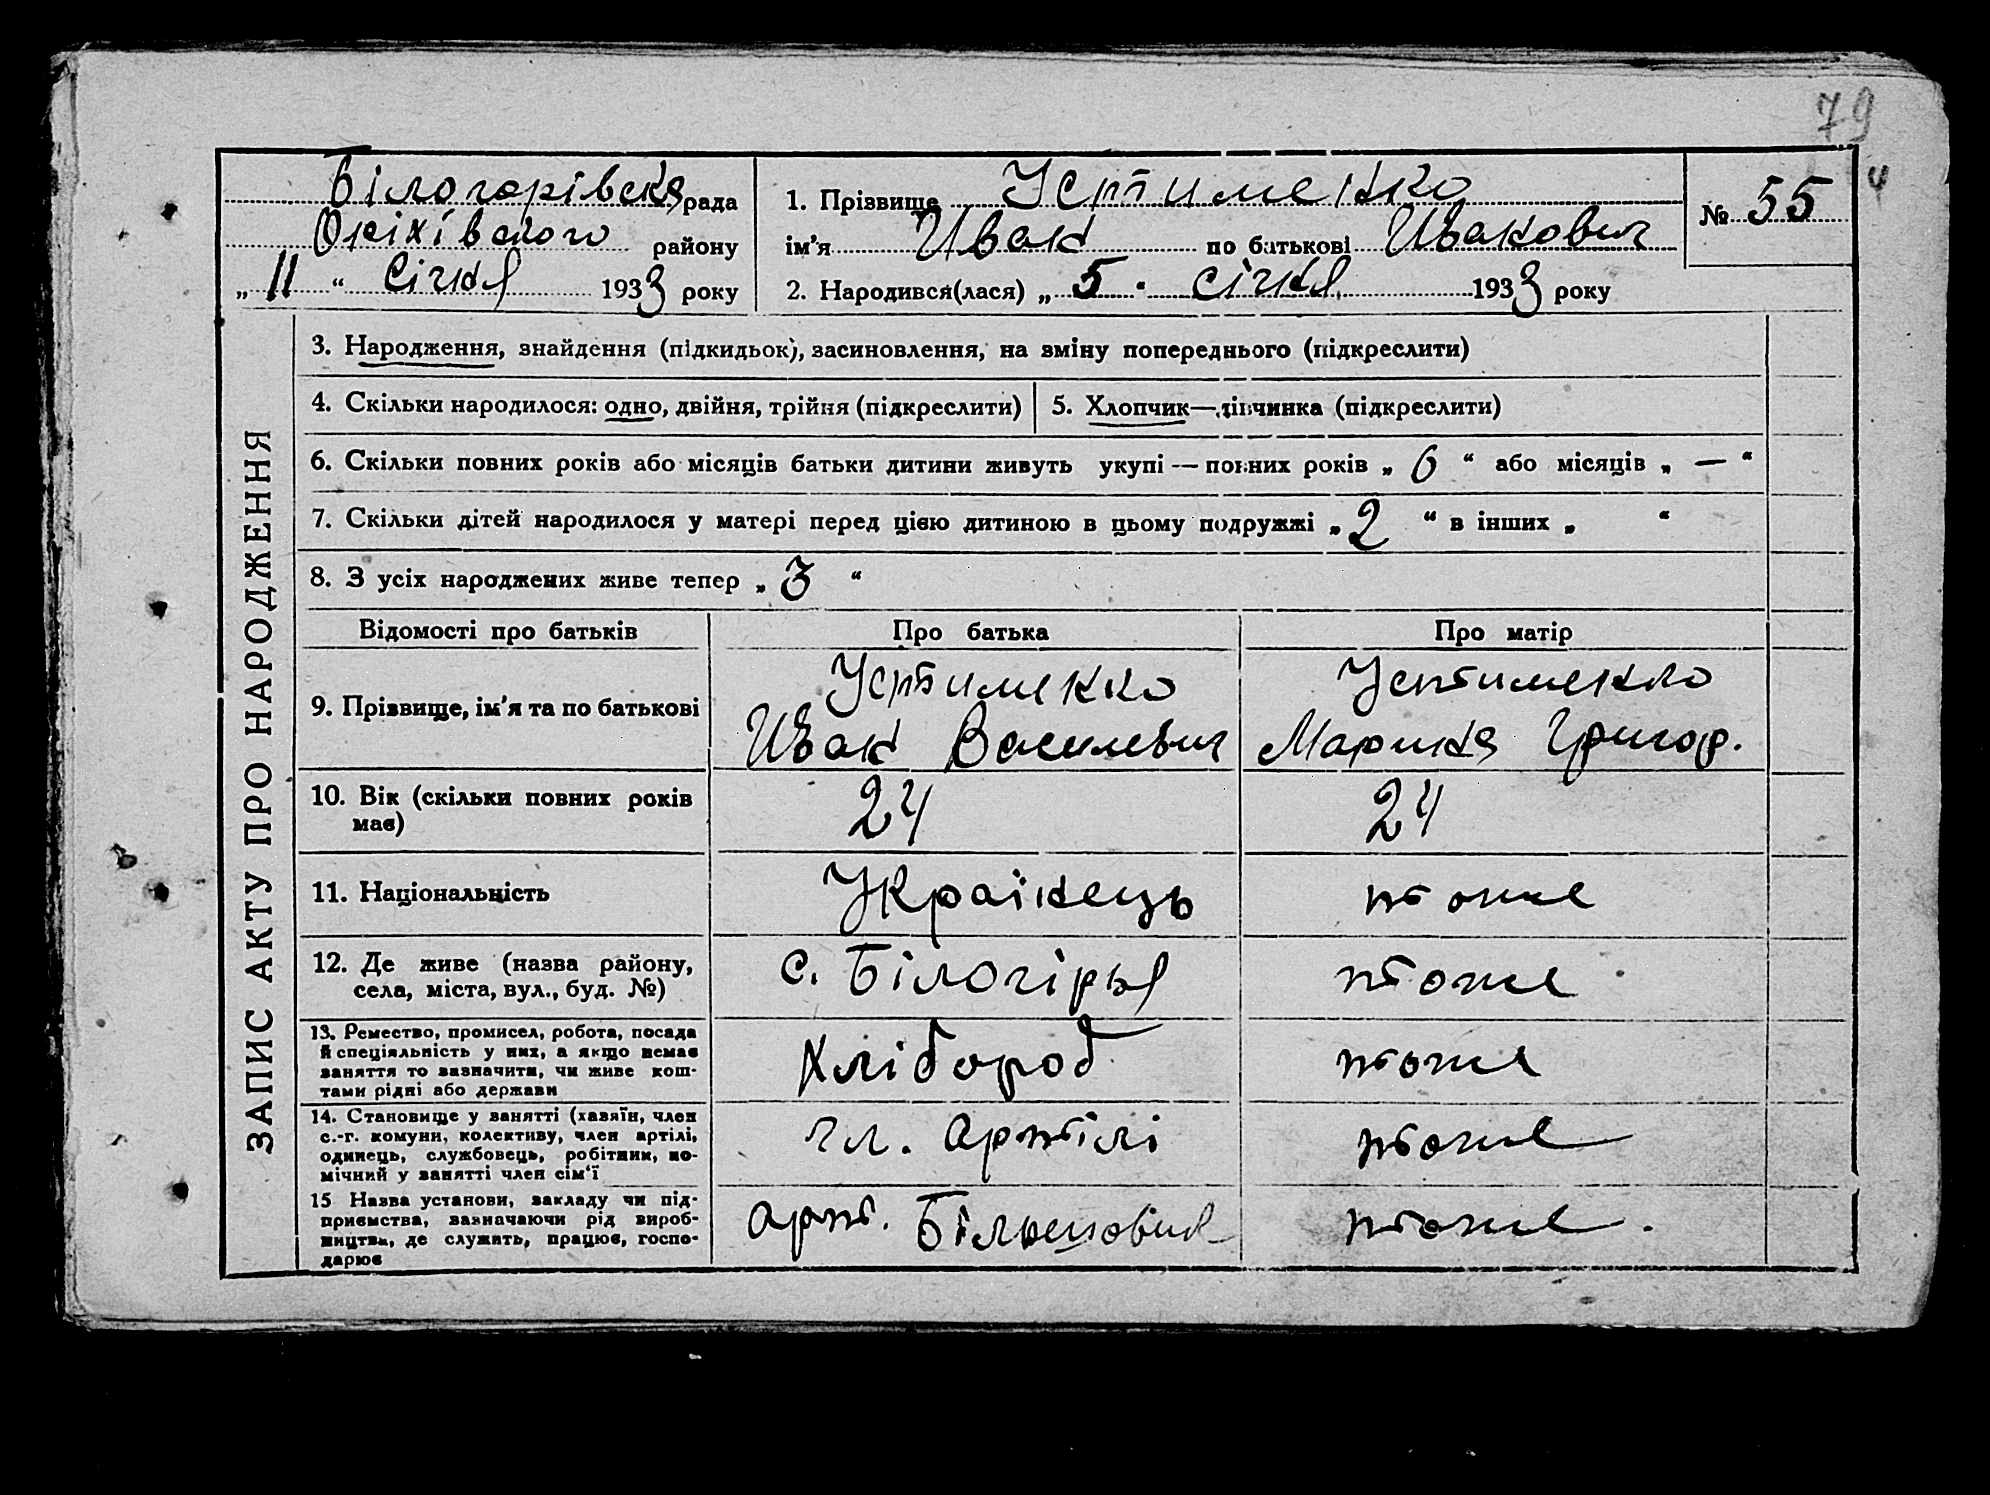 79
4
Білогорівська рада
Оріхівського району
„ 11 “ Січня 1933 року
1. Прізвище Устименко
ім’я Иван по батькові Иванович
2. Народився(лася) „ 5 . січня 1933 року
№ 55
ЗАПИС АКТУ ПРО НАРОДЖЕННЯ
3. Народження, знайдення (підкидьок), засиновлення, на зміну попереднього (підкреслити)
4. Скільки народилося: одно, двійня, трійня (підкреслити)
5. Хлопчик—дівчинка (підкреслити)
6. Скільки повних років або місяців батьки дитини живуть укупі — повних років „ 6 “ або місяців „ — “
7. Скільки дітей народилося у матері перед цією дитиною в цьому подружжі „ 2 “ в інших „ “
8. З усіх народжених живе тепер „ 3 “
Відомості про батьків
Про батька
Про матір
9. Прізвище, ім’я та по батькові
Устименко
Иван Василевич
Устименко
Марина Григор.
10. Вік (скільки повних років
має)
24
24
11. Національність
Українець
тоже
12. Де живе (назва району,
села, міста, вул., буд. №)
с. Білогірья
тоже
13. Ремество, промисел, робота, посада
й спеціяльність у них, а якщо немає
заняття то зазначити, чи живе кош-
тами рідні або держави
Хлібороб
тоже
14. Становище у занятті (хазяїн, член
с.-г. комуни, колективу, член артілі,
одинець, службовець, робітник, по-
мічний у занятті член сім‘ї
чл. артілі
тоже
15 Назва установи, закладу чи під-
приємства, зазначаючи рід вироб-
ництва, де служить, працює, госпо-
дарює
арт. Більшовик
тоже.